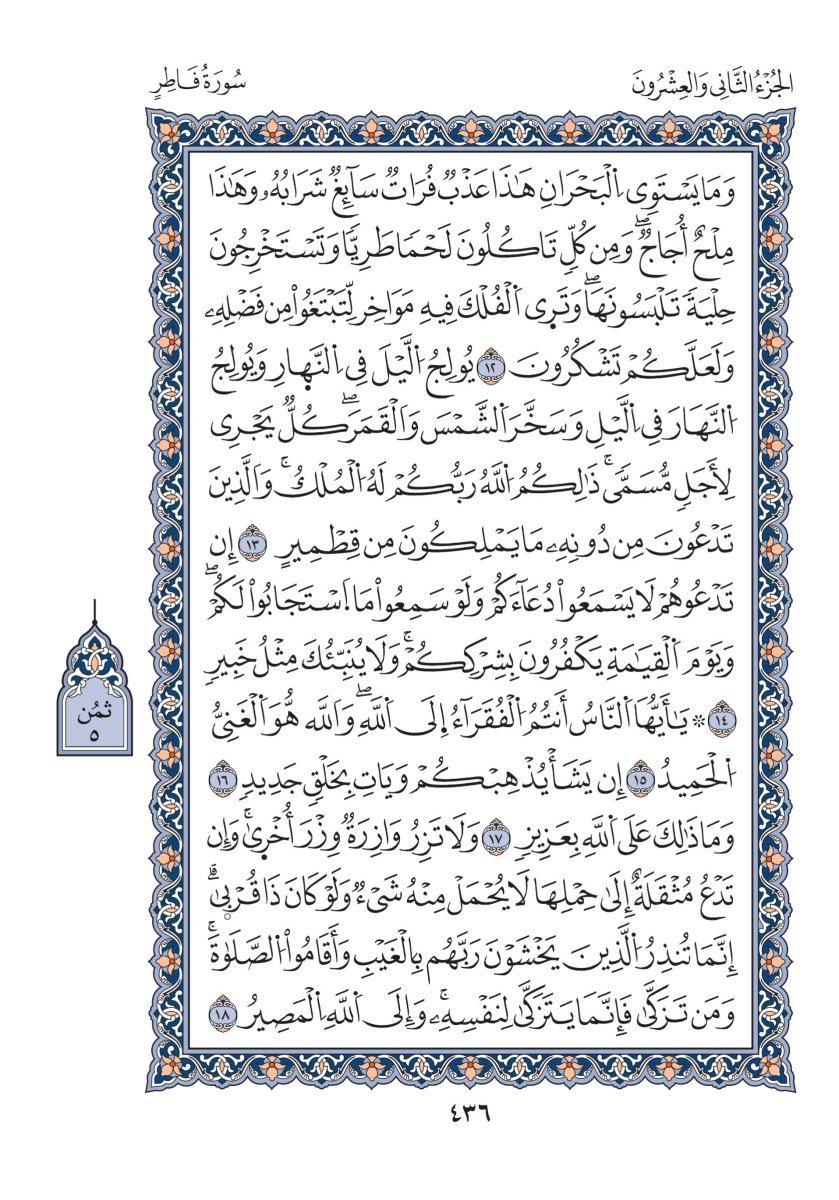 الجُزْءُ الثَّانِي وَالعِشْرُونَ
سُورَةُ فَاطِرٍ
وَمَا يَسْتَوِى اِ۬لْبَحْرَانِ هَٰذَا عَذْبٞ فُرَاتٞ سَآئِغٞ شَرَابُهُۥ وَهَٰذَا
مِلْحٌ أُجَاجٞۖ وَمِن كُلّٖ تَاكُلُونَ لَحْماٗ طَرِيّاٗ وَتَسْتَخْرِجُونَ
حِلْيَةٗ تَلْبَسُونَهَاۖ وَتَرَى اَ۬لْفُلْكَ فِيهِ مَوَاخِرَ لِتَبْتَغُواْ مِن فَضْلِهِۦ
وَلَعَلَّكُمْ تَشْكُرُونَ ١٢ يُولِجُ اُ۬لَّيْلَ فِى اِ۬لنَّه۪ارِ وَيُولِجُ
اُ۬لنَّهَارَ فِى اِ۬لَّيْلِ وَسَخَّرَ اَ۬لشَّمْسَ وَالْقَمَرَۖ كُلّٞ يَجْرِى
لِأَجَلٖ مُّسَمّٗىۚ ذَٰلِكُمُ اُ۬للَّهُ رَبُّكُمْ لَهُ اُ۬لْمُلْكُۚ وَالَّذِينَ
تَدْعُونَ مِن دُونِهِۦ مَا يَمْلِكُونَ مِن قِطْمِيرٍ ١٣ إِن
تَدْعُوهُمْ لَا يَسْمَعُواْ دُعَآءَكُمْ وَلَوْ سَمِعُواْ مَا اَ۪سْتَجَابُواْ لَكُمْۖ
وَيَوْمَ اَ۬لْقِيَٰمَةِ يَكْفُرُونَ بِشِرْكِكُمْۚ وَلَا يُنَبِّئُكَ مِثْلُ خَبِيرٖ
١٤ ۞ يَٰٓأَيُّهَا اَ۬لنَّاسُ أَنتُمُ اُ۬لْفُقَرَآءُ اِ۪لَى اَ۬للَّهِۖ وَاللَّه هُّوَ اَ۬لْغَنِىُّ
اُ۬لْحَمِيدُ ١٥ إِن يَشَأْ يُذْهِبْكُمْ وَيَاتِ بِخَلْقٖ جَدِيدٖ ١٦
وَمَا ذَٰلِكَ عَلَى اَ۬للَّهِ بِعَزِيزٖ ١٧ وَلَا تَزِرُ وَازِرَةٞ وِزْرَ أُخْر۪ىٰۚ وَإِن
تَدْعُ مُثْقَلَةٌ إِلَىٰ حِمْلِهَا لَا يُحْمَلْ مِنْهُ شَىْءٞ وَلَوْ كَانَ ذَا قُرْب۪ىٰٓۗ
إِنَّمَا تُنذِرُ اُ۬لَّذِينَ يَخْشَوْنَ رَبَّهُم بِالْغَيْبِ وَأَقَامُواْ اُ۬لصَّلَوٰةَۚ
وَمَن تَزَكَّىٰ فَإِنَّمَا يَتَزَكَّىٰ لِنَفْسِهِۦۚ وَإِلَى اَ۬للَّهِ اِ۬لْمَصِيرُ ١٨
ثمُن
٥
٤٣٦